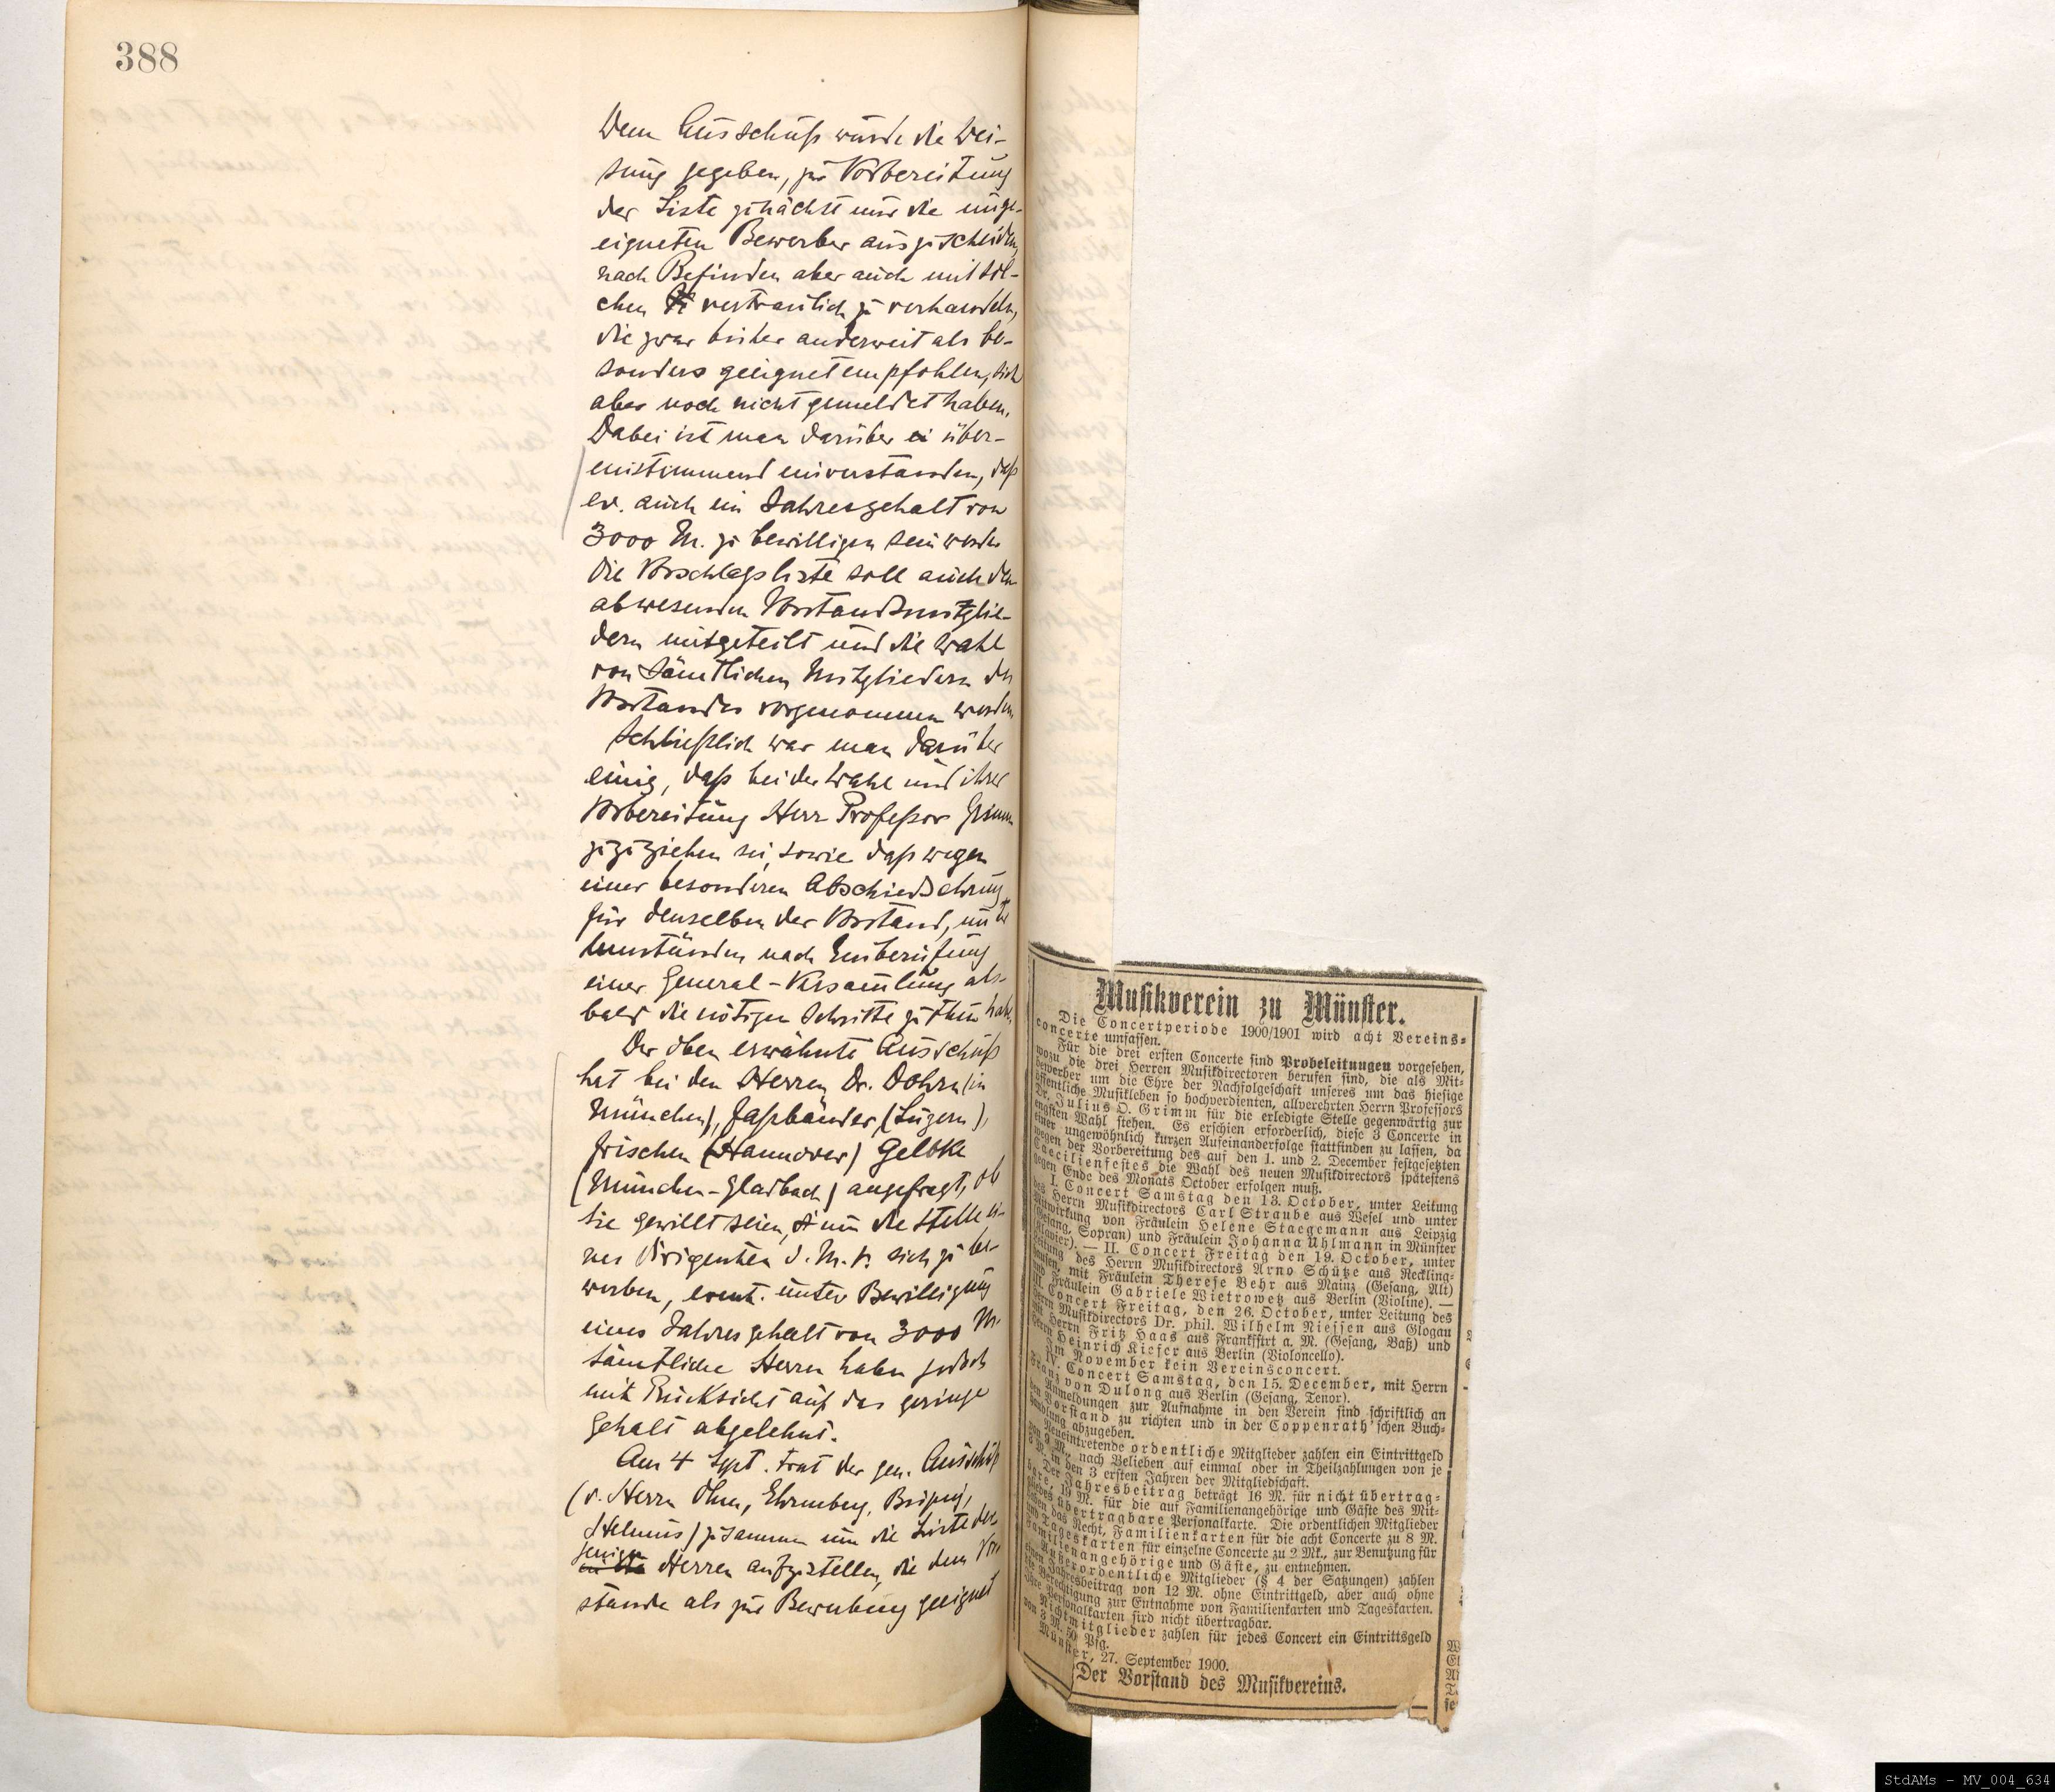 388
Dem Ausschuß wurde die Wei-
sung gegeben, zur Vorbereitung
der Liste zunächst nur die unge-
eigneten Bewerber auszuscheiden,
nach Befinden aber auch mit sol-
chen vertraulich zu verhandeln,
die zwar bisher anderweit als be-
sonders geeignet empfohlen, sich
aber noch nicht gemeldet haben.
Dabei ist man darüber über-
einstimmend einverstanden, daß
ev. auch ein Jahresgehalt von
3000 M. zu bewilligen sein werde
Die Vorschlagsliste soll auch den
abwesenden Vorstandsmitglie-
dern mitgeteilt und die Wahl
von sämtlichen Mitgliedern des
Vorstandes vorgenommen werden.
Schließlich war man darüber
einig, daß bei der Wahl und ihrer
Vorbereitung Herr Professor Grimm
zuzuziehen sei, sowie daß wegen
einer besonderen Abschiedsehrung
für denselben der Vorstand, unter
Umständen nach Einberufung
einer General-Versamlung als-
bald die nötigen Schritte zu thun habe.
Der oben erwähnte Ausschuß
hat bei den Herren Dr. Dohrn (in
München), Faßbänder (Luzern),
Frischen (Hannover) Gelbke
(München-Gladbach) angefragt, ob
sie gewillt seien, um die Stelle ei-
nes Dirigenten d. M. V. sich zu be-
werben, event. unter Bewilligung
eines Jahresgehalt von 3000 M.
Sämtliche Herren haben jedoch
mit Rücksicht auf das geringe
Gehalt abgelehnt.
Am 4 Sept. trat der gen. Ausschuß
(d. Herrn Ohm, Ehrenberg,
Helmus) zusammen um die Liste der
jenigen Herren aufzustellen, die dem Vor-
stande als zur Bewerbung geeignet
Musikverein zu Münster.
Die Concertperiode 1900/1901 wird acht Vereins-
concerte umfassen.
Für die drei ersten Concerte sind Probeleitungen vorgesehen,
wozu die drei Herren Musikdirectoren berufen sind, die als Mit-
bewerber um die Ehre der Nachfolgeschaft unseres um das hiesige
öffentliche Musikleben so hochverdienten, allverehrten Herrn Professors
Dr. Julius O. Grimm für die erledigte Stelle gegenwärtig zur
engsten Wahl stehen. Es erschien erforderlich, diese 3 Concerte in
einer ungewöhnlich kurzen Aufeinanderfolge stattfinden zu lassen, da
wegen der Vorbereitung des auf den 1. und 2. December festgesetzten
Caecilienfestes die Wahl des neuen Musikdirectors spätestens
gegen Ende des Monats October erfolgen muß.
I. Concert Samstag den 13. October, unter Leitung
des Herrn Musikdirectors Carl Straube aus Wesel und unter
Mitwirkung von Fräulein Helene Staegemann aus Leipzig
(Gesang, Sopran) und Fräulein Johanna Uhlmann in Münster
(Clavier). — II. Concert Freitag den 19. October, unter
Leitung des Herrn Musikdirectors Arno Schütze aus Reckling-
hausen, mit Fräulein Therese Behr aus Mainz (Gesang, Alt)
und Fräulein Gabriele Wietrowetz aus Berlin (Violine). —
III. Concert Freitag, den 26. October, unter Leitung des
Herrn Musikdirectors Dr. phil. Wilhelm Niessen aus Glogau
mit Herrn Fritz Haas aus Frankffirt a. M. (Gesang, Baß) und
Herrn Heinrich Kiefer aus Berlin (Violoncello).
Im November kein Vereinsconcert.
IV. Concert Samstag, den 15. December, mit Herrn
Franz von Dulong aus Berlin (Gesang, Tenor).
Anmeldungen zur Aufnahme in den Verein sind schriftlich an
den Vorstand zu richten und in der Coppenrath'schen Buch-
handlung abzugeben.
Neueintretende ordentliche Mitglieder zahlen ein Eintrittgeld
von 9 M., nach Belieben auf einmal oder in Theilzahlungen von je
3 M. in den 3 ersten Jahren der Mitgliedschaft.
Der Jahresbeitrag beträgt 16 M. für nicht übertrag-
bare, 19 M. für die auf Familienangehörige und Gäste des Mit-
gliedes übertragbare Personalkarte. Die ordentlichen Mitglieder
haben das Recht, Familienkarten für die acht Concerte zu 8 M.
und Tageskarten für einzelne Concerte zu 2 Mk., zur Benutzung für
Familienangehörige und Gäste, zu entnehmen.
Außerordentliche Mitglieder (§ 4 der Satzungen) zahlen
einen Jahresbeitrag von 12 M. ohne Eintrittgeld, aber auch ohne
die Berechtigung zur Entnahme von Familienkarten und Tageskarten.
Ihre Personalkarten sind nicht übertragbar.
Nichtmitglieder zahlen für jedes Concert ein Eintrittsgeld
von 3 M. 50 Pfg.
Münster, 27. September 1900.
Der Vorstand des Musikvereins.
StdAMs - MV_004_634